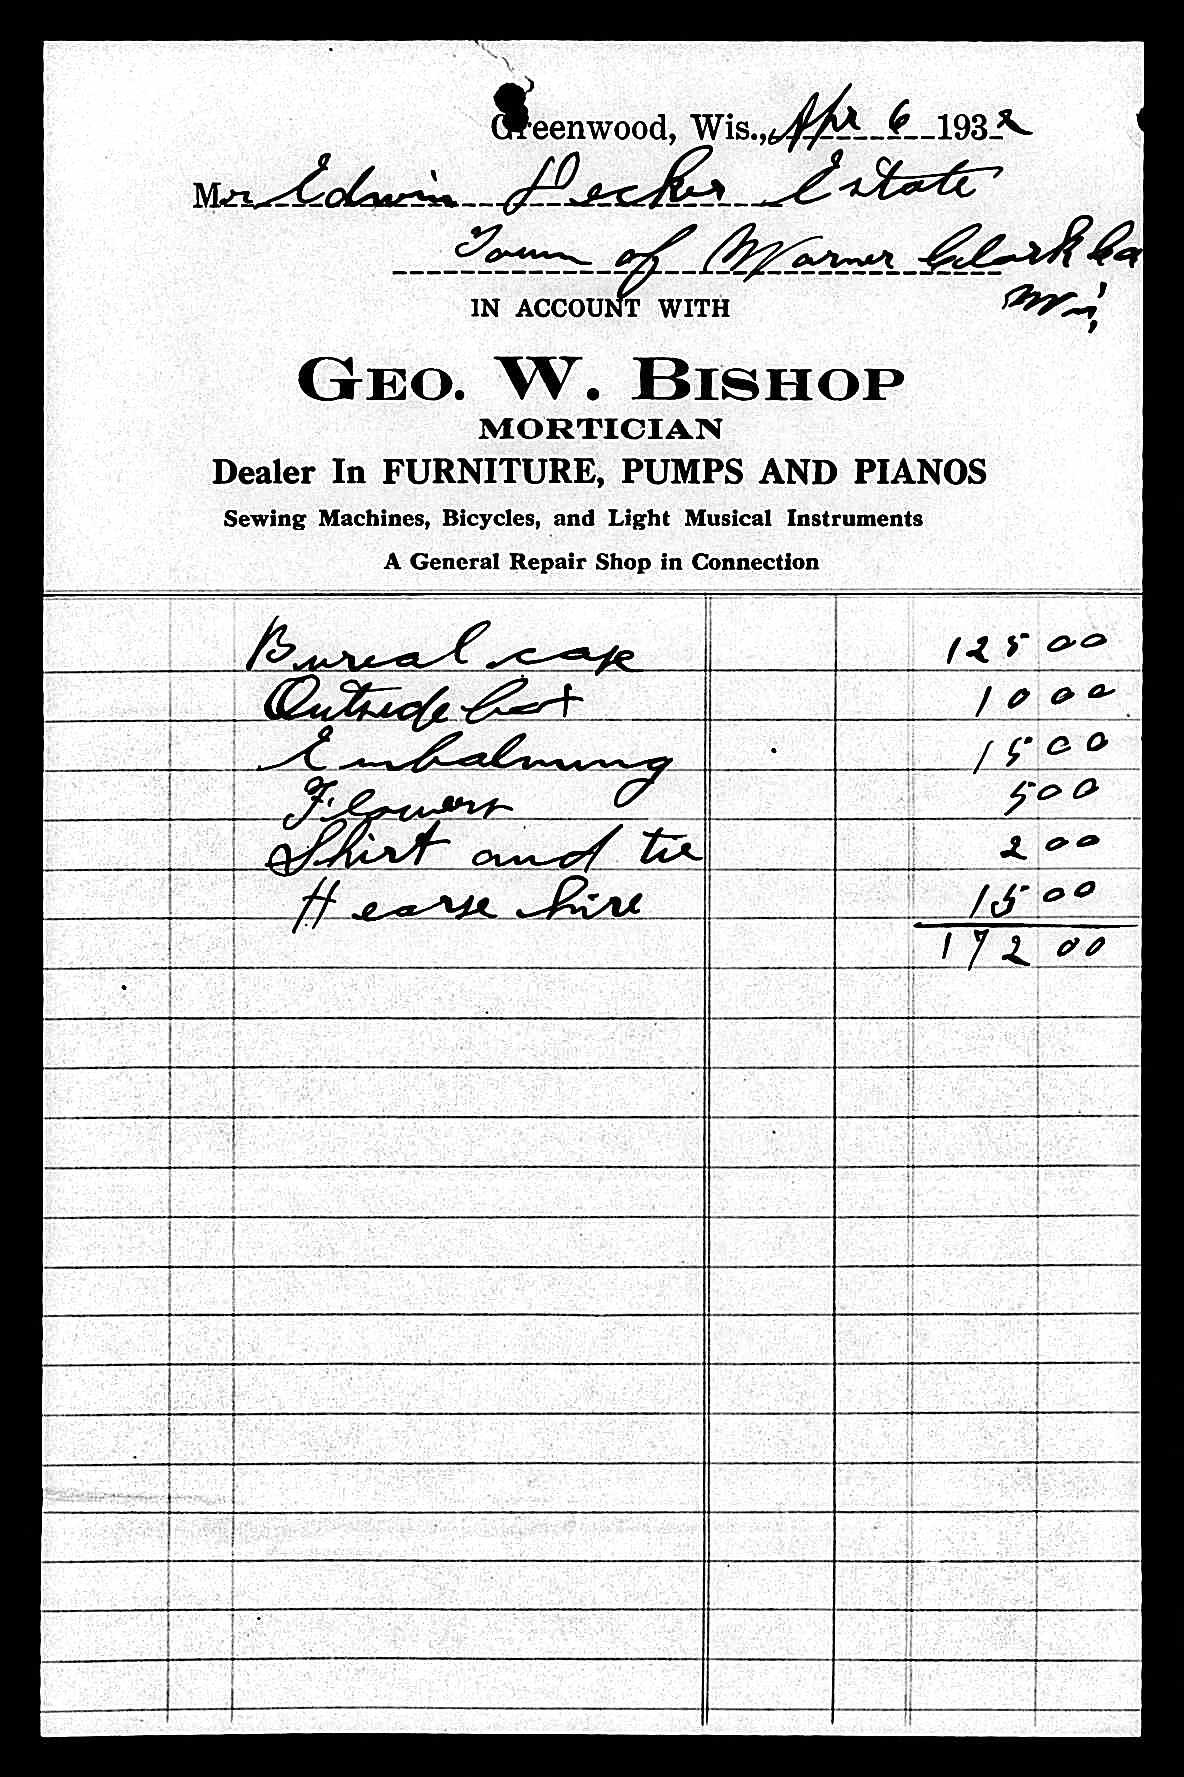 Greenwood, Wis., Apr 6 1932
Mr Edwin Decker Estate
Town of Warner Clark Co
Wis
IN ACCOUNT WITH
GEO. W. BISHOP
MORTICIAN
Dealer In FURNITURE, PUMPS AND PIANOS
Sewing Machines, Bicycles, and Light Musical Instruments
A General Repair Shop in Connection
Bureal case 125 00
Outside box 10 00
Embalming 15 00
Flowers 5 00
Shirt and tie 2 00
Hearse hire 15 00
172 00